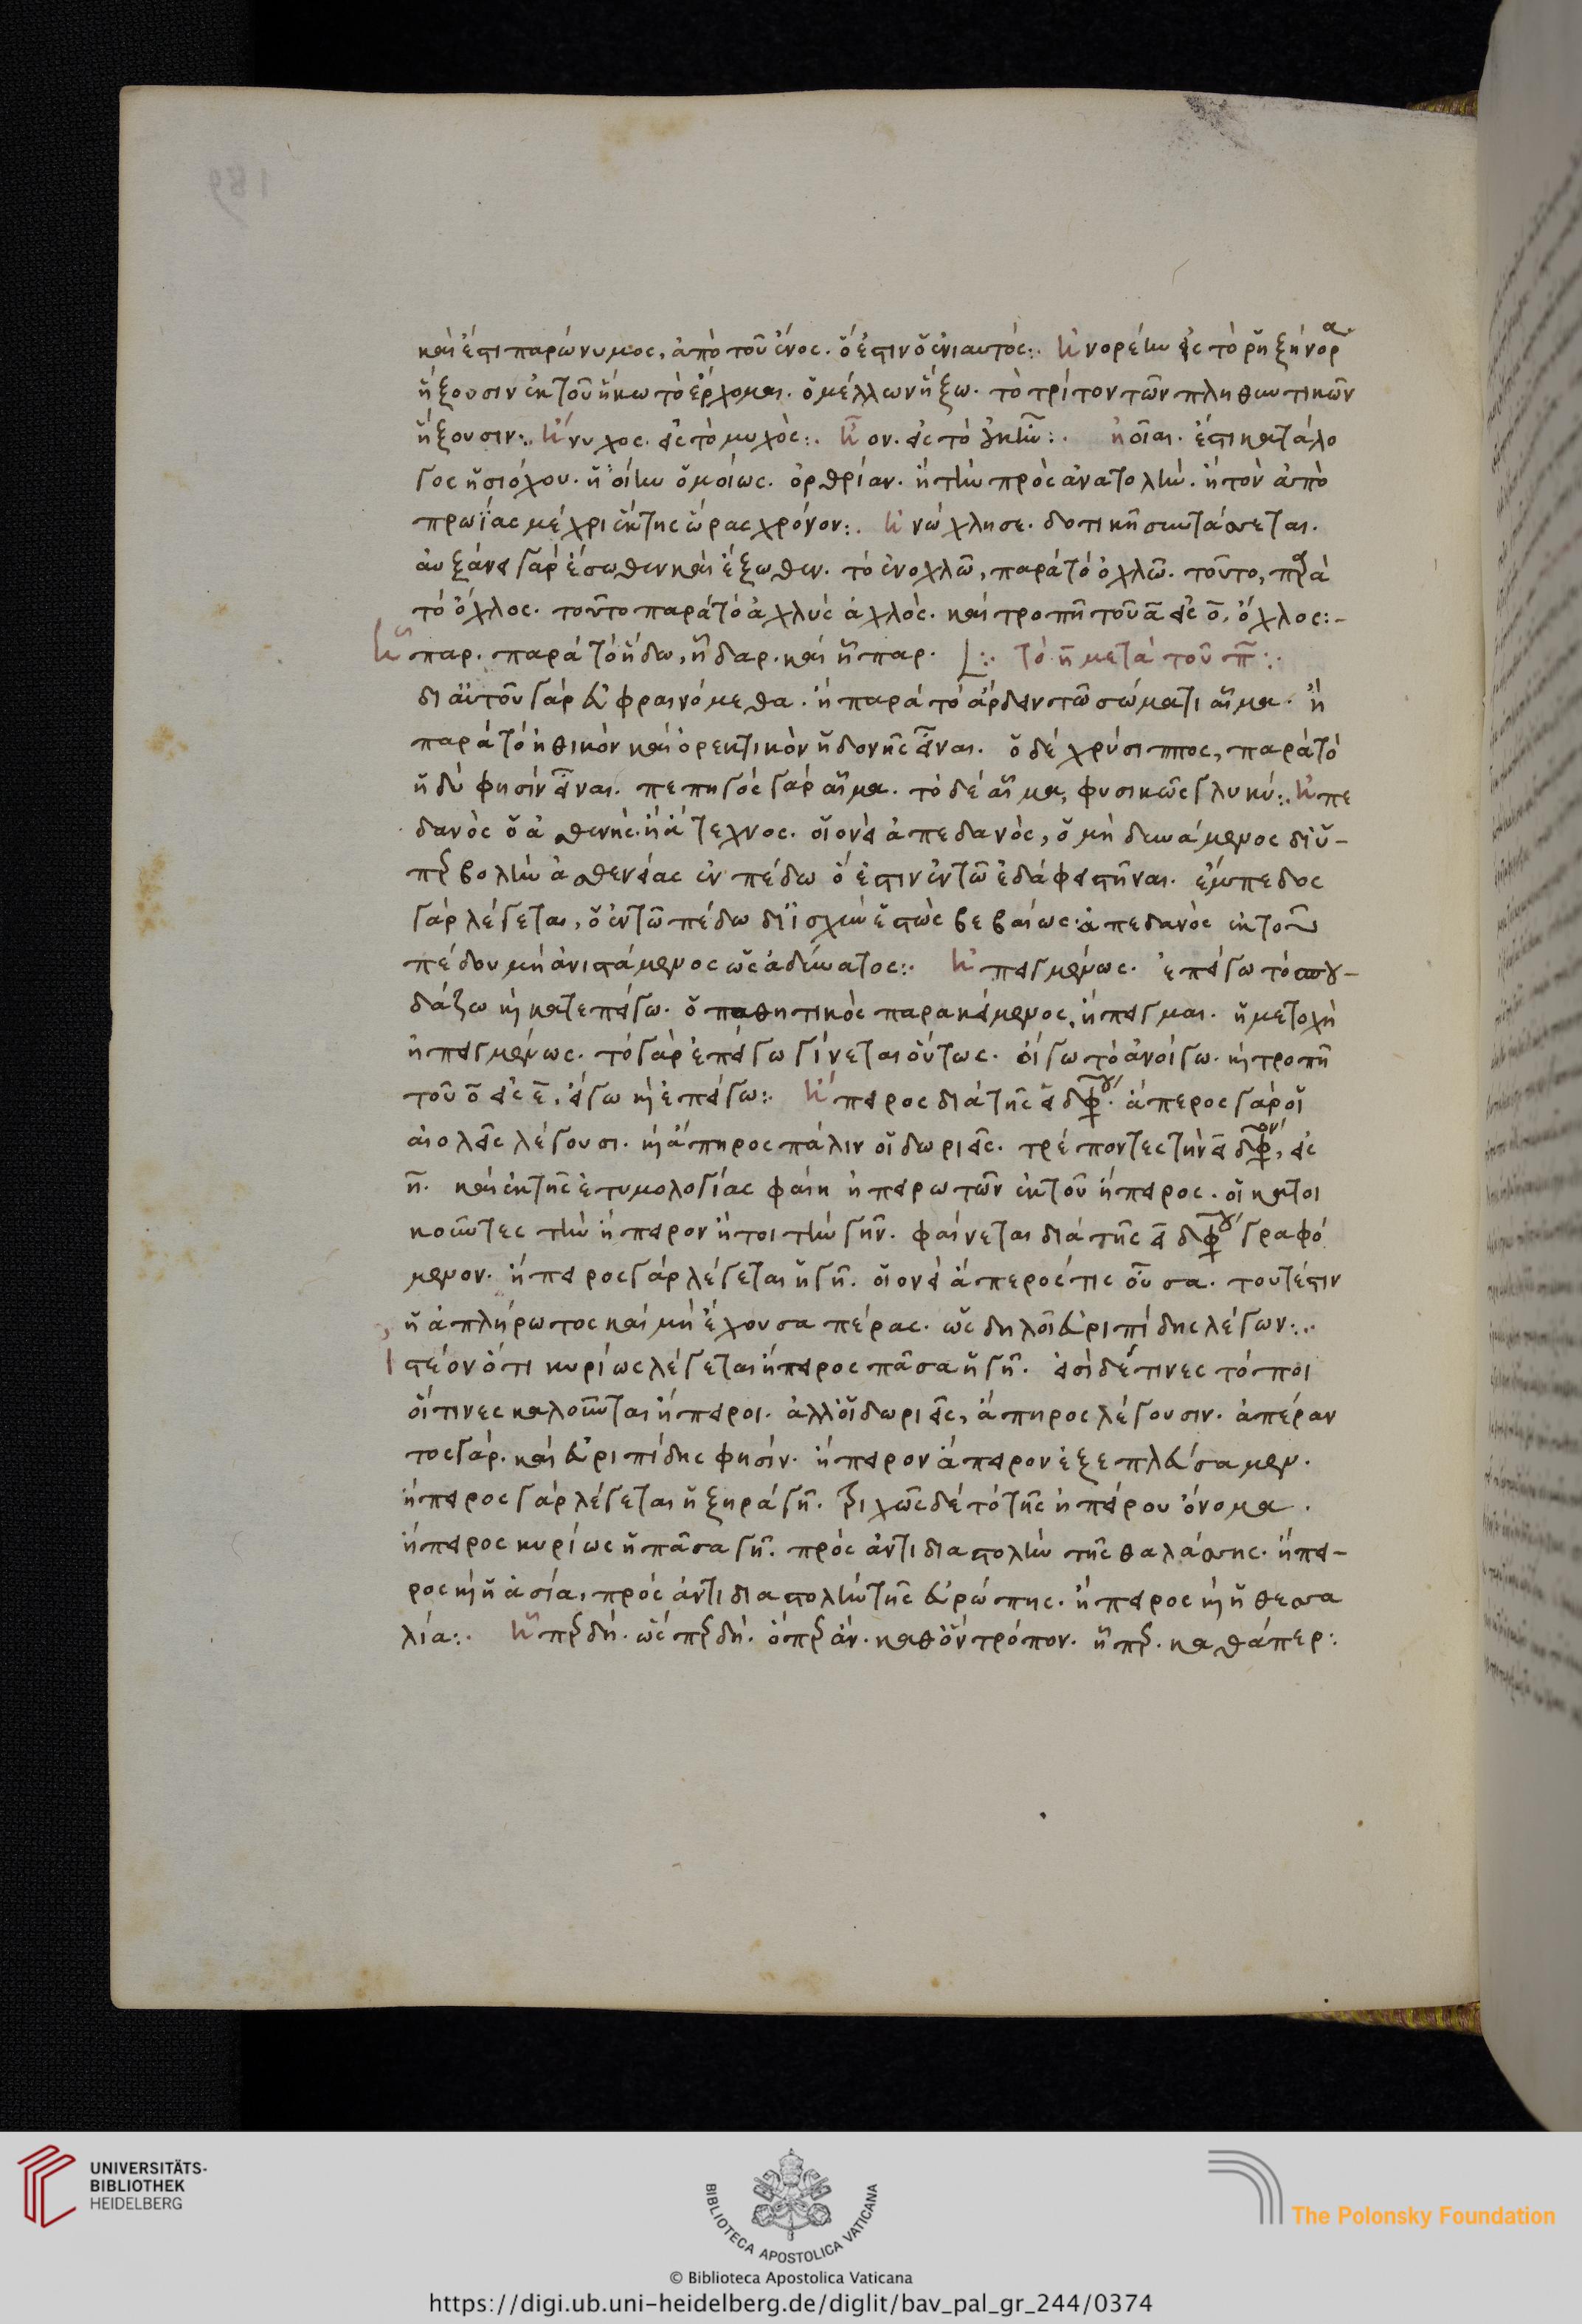 καὶ ἔστι παρώνυμος, ἀπὸ τοῦ ἔνος. ὅ ἐστιν ὁ ἐνιαυτός:. Ἠνορέην εἰς τὸ ῥηξήνορα.
ἥξουσιν ἐκ τοῦ ἥκω τὸ ἔρχομαι. ὁ μέλλων ἥξω. τὸ τρίτον τῶν πληθυντικῶν
ἥξουσιν:. Ἤνυχος. εἰς τὸ μυχός:. ον. εἰς τὸ :. ἠοῖαι. ἔστι κατάλο
γος ἡσιόδου. ἠοίην ὁμοίως. ὀρθρίαν. ἢ τὴν πρὸς ἀνατολήν. ἢ τὸν ἀπὸ
πρωΐας μέχρι ἕκτης ὥρας χρόνον:. Ἠνώχλησε. δοτικῇ συντάσσεται.
αὐξάνει γὰρ ἔσωθεν καὶ ἔξωθεν. τὸ ἐνοχλῶ, παρὰ τὸ ὀχλῶ. τοῦτο, παρὰ
τὸ ὄχλος. τοῦτο παρὰ τὸ ἀχλὺς ἀχλός. καὶ τροπῇ τοῦ α εἰς ο, ὄχλος:-
Ἧπαρ. παρὰ τὸ ἥδω, ἧδαρ. καὶ ἧπαρ. :. τὸ η μετὰ τοῦ π:.
δι αὐτοῦ γὰρ εὐφραινόμεθα. ἢ παρὰ τὸ ἄρδειν τῶ σώματι αἷμα. ἢ
παρὰ τὸ ἠθικὸν καὶ ὀρεκτικὸν ἡδονῆς εἶναι. ὁ δὲ χρύσιππος, παρὰ τὸ
ἡδύ φησίν εἶναι. πεπηγὸς γὰρ αἷμα. τὸ δὲ αἷμα, φυσικῶς γλυκύ:. Ἠπε
δανὸς ὁ ἀσθενής. ἢ ἄτεχνος. οἱονεὶ ἀπεδανὸς, ὁ μὴ δυνάμενος δι ὑ-
περβολὴν ἀσθενείας ἐν πέδω ὅ ἐστιν ἐν τῶ ἐδάφει στῆναι. ἔμπεδος
γὰρ λέγεται, ὁ ἐν τῶ πέδω δι ἰσχὺν ἑστὼς βεβαίως. ἀπεδανὸς ἐκ τοῦ
πέδου μὴ ἀνιστάμενος ὡς ἀδύνατος:. Ἠπειγμένως. ἐπείγω τὸ σπου-
δάζω καὶ κατεπείγω. ὁ παθητικὸς παρακείμενος, ἤπειγμαι. ἡ μετοχὴ
ἠπειγμένως. τὸ γὰρ ἐπείγω γίνεται οὕτως. οἴγω τὸ ἀνοίγω. καὶ τροπῇ
τοῦ ο εἰς ε, εἴγω καὶ ἐπείγω:. Ἤπειρος διὰ τῆς ει διφθόγγου. ἄπερος γὰρ οἱ
αἰολεῖς λέγουσι. καὶ ἄπηρος πάλιν οἱ δωριεῖς. τρέποντες τὴν ει δίφθογγον, εἰς
η. καὶ ἐκ τῆς ἐτυμολογίας φαίη ἠπειρωτῶν ἐκ τοῦ ἤπειρος. οἱ κατοι
κοῦντες τὴν ἤπειρον ἤτοι τὴν γῆν. φαίνεται διὰ τῆς ει διφθόγγου γραφό
μενον. ἤπειρος γὰρ λέγεται ἡ γῆ. οἱονεὶ ἄπερος τις οὖσα. τουτέστιν
ἡ ἀπλήρωτος καὶ μὴ ἔχουσα πέρας. ὡς δηλοῖ εὐριπίδης λέγων:.
Ἰστέον ὅτι κυρίως λέγεται ἤπειρος πᾶσα ἡ γῆ. εἰσὶ δέ τινες τόποι
οἵτινες καλοῦνται ἤπειροι. ἀλλ οἱ δωριεῖς, ἄπηρος λέγουσιν. ἀπέραν
τος γάρ. καὶ εὐριπίδης φησίν. ἤπειρον ἄπειρον ἐξεπλεύσαμεν.
ἤπειρος γὰρ λέγεται ἡ ξηρὰ γῆ. τριχῶς δὲ τὸ τῆς ἠπείρου ὄνομα.
ἤπειρος κυρίως ἡ πᾶσα γῆ. πρὸς ἀντιδιαστολὴν τῆς θαλάσσης. ἤπει-
ρος καὶ ἡ ἀσία, πρὸς ἀντιδιαστολὴν τῆς εὐρώπης. ἤπειρος καὶ ἡ θεσσα
λία:. Ἧπερ δή. ὡς περ δή. ὅπερ ἄν. καθ ὃν τρόπον. ἧπερ. καθάπερ:
UNIVERSITÄTS-
BIBLIOTHEK
HEIDELBERG
BIBLIOTECA APOSTOLICA VATICANA
The Polonsky Foundation
© Biblioteca Apostolica Vaticana
https://digi.ub.uni-heidelberg.de/diglit/bav_pal_gr_244/0374